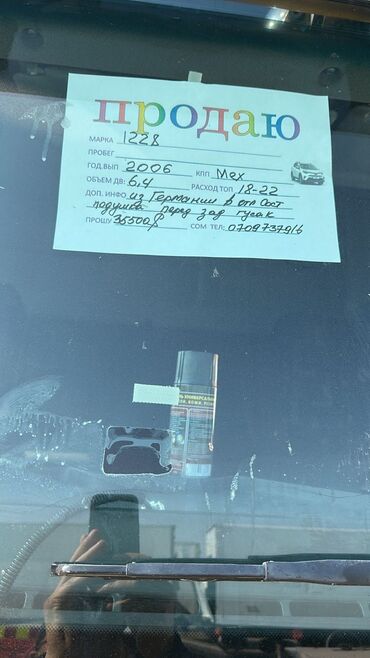 продаю
МАРКА 1228
ПРОБЕГ
ГОД.ВЫП 2006 КПП Мех
ОБЪЕМ ДВ: 6,4 РАСХОД ТОП 18-22
ДОП. ИНФО: из Германии в отл Сост
подушка перед зад гусак
ПРОШУ 35500$ СОМ ТЕЛ: 0709737916
УНИВЕРСАЛЬ
КОЖИ